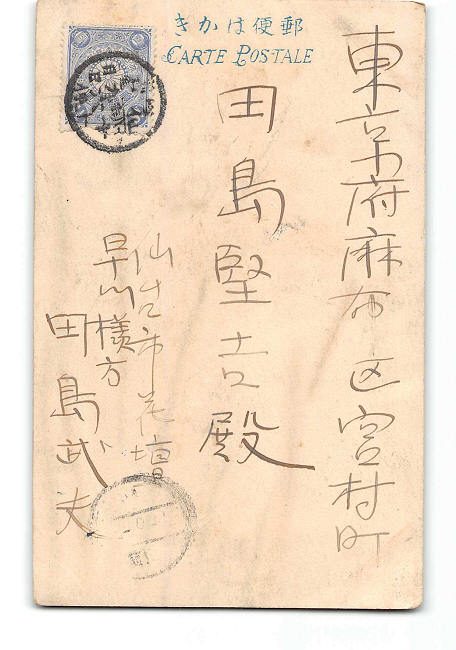 きかは便郵
CARTE POSTALE
東京府麻布区宮村町
田島堅吉殿
仙台市花壇
早川様方
田島武夫